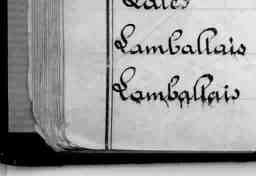 Lamballais
Lamballais